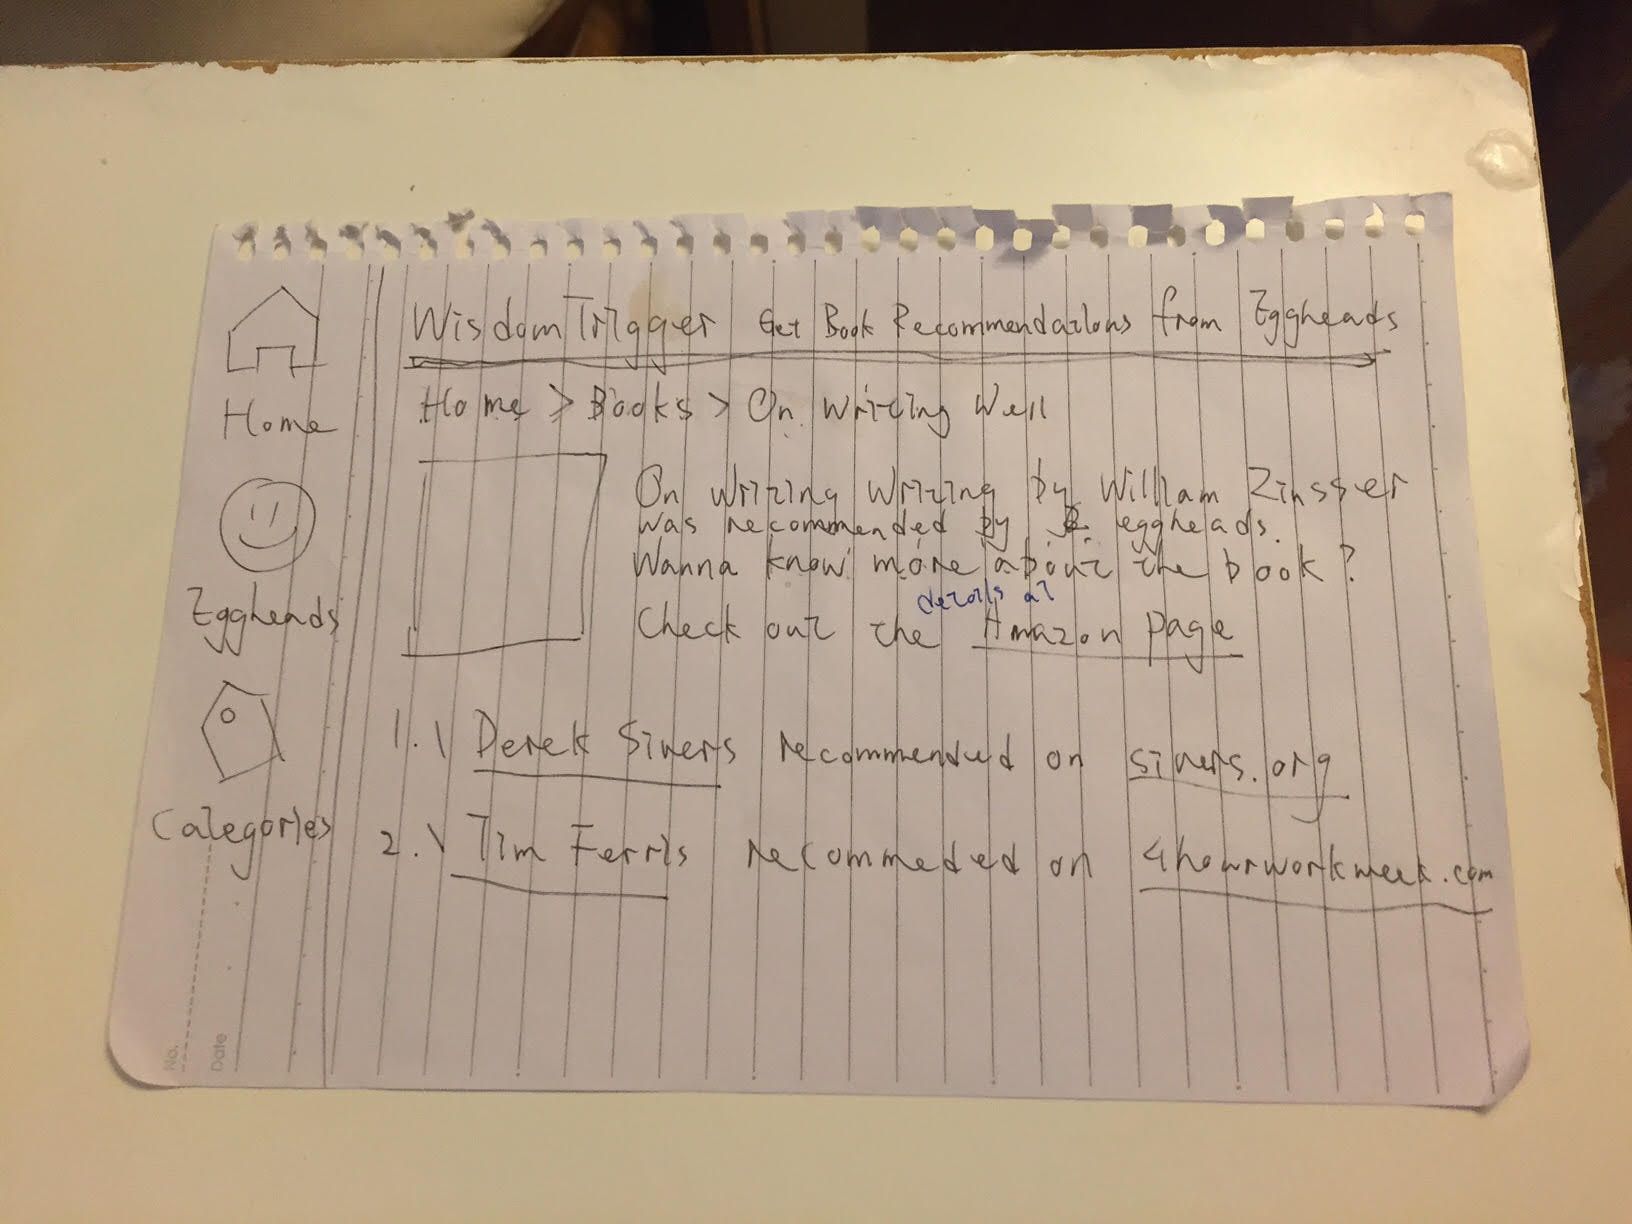 WisdomTrigger Get Book Recommendations from Eggheads
Home > Books > On Writing Well
On writing writing by William Zinsser
was recommended by 2 eggheads.
Wanna know more about the book?
details at
Check out the Amazon page
1.\ Derek Sivers recommended on sivers.org
2.\ Tim Ferris recommeded on 4hourworkweek.com
Home
Eggheads
Categories
No.
Date